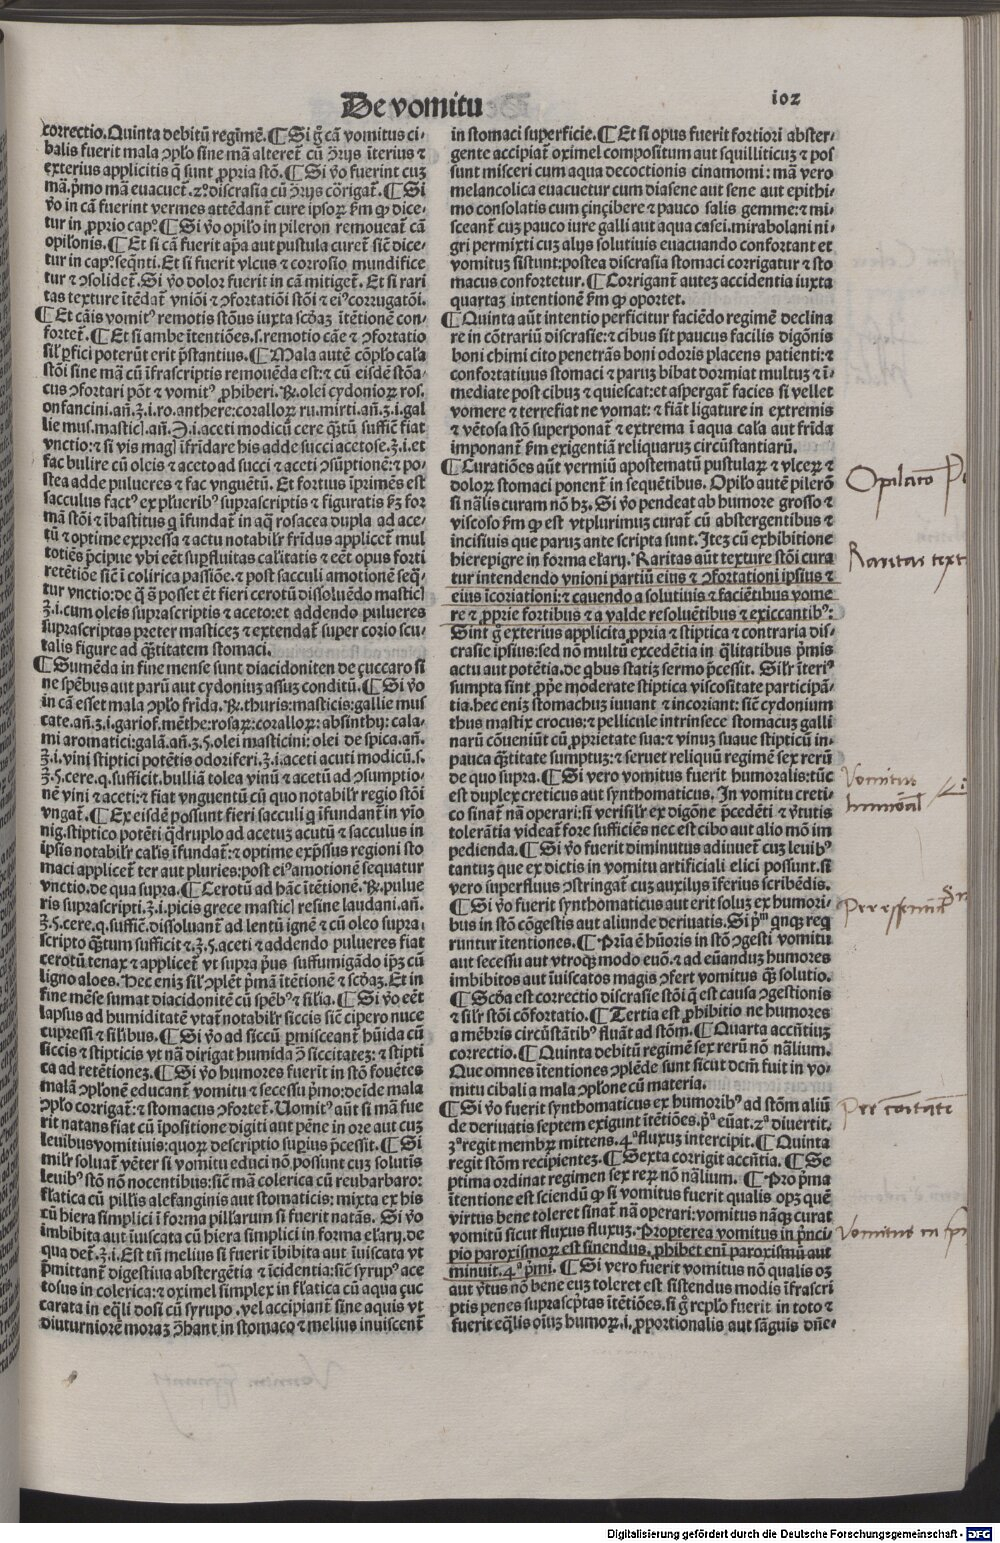 De vomitu
102
correctio. Quinta debitū regimē. ¶ Si g̃ cā vomitus ci-
balis fuerit mala ꝯplo sine mā alteret̃ cū ꝯ̃rijs īterius ⁊
exterius applicitis q̃ sunt ꝓpria stō. ¶ Si ṽo fuerint cuꝫ
mā. p̃mo mā euacuet̃. 2º discrasia cū ꝯ̃rijs cōrigat̃. ¶ Si
ṽo in cā fuerint vermes attēdant̃ cure ipsoꝝ ẜm ꝙ dice-
tur in ꝓprio capº. ¶ Si ṽo opilo in pileron remoueat̃ cā
opilonis. ¶ Et si cā fuerit ap̃a aut pustula curet̃ sic̄ dice-
tur in capº. seq̃nti. Et si fuerit vlcus ⁊ corrosio mundifice
tur ⁊ ꝯsolidet̃. Si ṽo dolor fuerit in cā mitiget̃. Et si rari
tas texture ītēdat̃ vniōi ⁊ ꝯfortatiōi stōi ⁊ eiꝰ corrugatōi.
¶ Et cāis vomitꝰ remotis stōus iuxta scd̄aꝫ ītētionē con-
fortet̃. ¶ Et si ambe ītentiōes. s. remotio cāe ⁊ ꝯfortatio
sil̃ ꝑfici poterūt erit p̃stantius. ¶ Mala autē cōplo cal̃a
stōi sine mā cū īfrascriptis remouēda est: ⁊ cū eisdē stōa-
cus ꝯfortari pōt ⁊ vomitꝰ ꝓhiberi. ℞. olei cydonioꝝ ros.
onfancini. añ. ʒ. i. ro. anthere: coralloꝝ ru. mirti. añ. ʒ. i. gal
lie mus. masticꝭ. añ. ℈. i. aceti modicū cere q̃tū suffic̄ fiat
vnctio: ⁊ si vis magꝭ īfrīdare his adde succi acetose. ʒ. i. et
fac bulire cū oleis ⁊ aceto ad succi ⁊ aceti ꝯsūptionē: ⁊ po-
stea adde pulueres ⁊ fac vnguētū. Et fortius īprimēs est
sacculus factꝰ ex pluerib̃ꝰ suprascriptis ⁊ figuratis ẜꝫ for
mā stōi ⁊ ībastitus q̃ īfundat̃ in aq̄ rosacea dupla ad ace-
tū ⁊ optime expressa ⁊ actu notabilr̃ frīdus applicet̃ mul
totiēs p̃cipue vbi eēt suꝑfluitas calitatis ⁊ eēt opus forti
retētiōe sic̄ ī colirica passiōe. ⁊ post sacculi amotionē seq̃-
tur vnctio: de q̃ s̃ posset ēt fieri cerotū dissoluēdo masticꝭ
ʒ. i. cum oleis suprascriptis ⁊ aceto: et addendo pulueres
suprascriptas preter masticeꝫ ⁊ extendat̃ super corio scu-
talis figure ad q̃ntitatem stomaci.
¶ Sumēda in fine mense sunt diacidoniten de çuccaro si
ne sp̄ebus aut parū aut cydonius assuꝫ conditū. ¶ Si ṽo
in cā esset mala ꝯplo frīda. ℞. thuris: masticis: gallie mus
cate. añ. ʒ. i. gariof. mēthe: rosaꝝ: coralloꝝ: absinthij: cala-
mi aromatici: galā. añ. ʒ. ꝭ. olei masticini: olei de spica. añ.
ʒ. i. vini stiptici potētis odoriferi. ʒ. i. aceti acuti modicū. s.
ʒ. ꝭ. cere. q. sufficit. bulliā tolea vinū ⁊ acetū ad ꝯsumptio-
nē vini ⁊ aceti: ⁊ fiat vnguentū cū quo notabilr̃ regio stōi
vngat̃. ¶ Ex eisdē possunt fieri sacculi q̃ īfundant̃ in vīo
nig. stiptico potēti q̃druplo ad acetuꝫ acutū ⁊ sacculus in
ipsis notabilr̃ cal̃is īfundat̃: ⁊ optime exp̃ssus regioni sto
maci applicet̃ ter aut pluries: post eiꝰ amotionē sequatur
vnctio. de qua supra. ¶ Cerotū ad hāc ītētionē. ℞. pulue
ris suprascripti. ʒ. i. picis grece masticꝭ resine laudani. añ.
ʒ. ꝭ. cere. q. suffic̄. dissoluant̃ ad lentū ignē ⁊ cū oleo supra-
scripto q̃ntum sufficit ⁊. ʒ. ꝭ. aceti ⁊ addendo pulueres fiat
cerotū tenax ⁊ applicet̃ vt supra p̃us suffumigādo ip̄ꝫ cū
ligno aloes. Hec eniꝫ sil̃ ꝯplēt p̃mā ītētionē ⁊ scd̄aꝫ. Et in
fine mēse sumat diacidonitē cū sp̄ebꝰ ⁊ silia. ¶ Si ṽo eēt
lapsus ad humiditatē vtat̃ notabilr̃ siccis sic̄ cipero nuce
cupressi ⁊ silibus. ¶ Si ṽo ad siccū ꝑmisceant̃ hūida cū
siccis ⁊ stipticis vt nā dirigat humida ꝯ̃ siccitateꝫ: ⁊ stipti
ca ad retētioneꝫ. ¶ Si ṽo humores fuerīt in stō fouētes
malā ꝯplonē educant̃ vomitu ⁊ secessu p̃mo: deīde mala
ꝯplo corrigat̃: ⁊ stomacus ꝯfortet̃. Uomitꝰ aūt si mā fue
rit natans fiat cū īpositione digiti aut pēne in ore aut cuꝫ
leuibus vomitiuis: quoꝝ descriptio suꝑius p̃cessit. ¶ Si
mil̃r soluat̃ vēter si vomitu educi nō possunt cuꝫ solutīs
leuibꝰ stō nō nocentibus: sic̄ mā colerica cū reubarbaro:
fl̃atica cū pill̃is alefanginis aut stomaticis: mixta ex his
cū hiera simplici ī forma pill̃arum si fuerit natās. Si ṽo
imbibita aut īuiscata cū hiera simplici in forma el̃arij. de
qua det̃. ʒ. i. Est tn̄ melius si fuerit ībibita aut īuiscata vt
p̃mittant̃ digestiua abstergētia ⁊ īcidentia: sic̄ syrupꝰ ace
tosus in colerica: ⁊ oximel simplex in fl̃atica cū aqua çuc
carata in eq̃li dosi cū syrupo. vel accipiant̃ sine aquis vt
diuturniorē moraꝫ ꝯ̃hant in stomaco ⁊ melius inuiscent̃
in stomaci superficie. ¶ Et si opus fuerit fortiori abster-
gente accipiat̃ oximel compositum aut squilliticuꝫ ⁊ pos
sunt misceri cum aqua decoctionis cinamomi: mā vero
melancolica euacuetur cum diasene aut sene aut epithi-
mo consolatis cum çinçibere ⁊ pauco salis gemme: ⁊ mi-
sceant̃ cuꝫ pauco iure galli aut aqua casei. mirabolani ni-
gri permixti cuꝫ alijs solutiuis euacuando confortant et
vomituꝫ sistunt: postea discrasia stomaci corrigatur ⁊ sto
macus confortetur. ¶ Corrigant̃ auteꝫ accidentia iuxta
quartaꝫ intentionē ẜm ꝙ oportet.
¶ Quinta aūt intentio perficitur faciēdo regimē declina
re in cōtrariū discrasie: ⁊ cibus sit paucus facilis digōnis
boni chimi cito penetrās boni odoris placens patienti: ⁊
confortatiuus stomaci ⁊ paruꝫ bibat dormiat multuꝫ ⁊ ī-
mediate post cibuꝫ ⁊ quiescat: et aspergat̃ facies si vellet
vomere ⁊ terrefiat ne vomat: ⁊ fiāt ligature in extremis
⁊ vētosa stō superponat̃ ⁊ extrema ī aqua cal̃a aut frīda
imponant̃ ẜm exigentiā reliquaruꝫ circūstantiarū.
¶ Curatiōes aūt vermiū apostematū pustulaꝝ ⁊ vlceꝝ ⁊
doloꝝ stomaci ponent̃ in sequētibus. Opilo autē pilerō
si nālis curam nō hꝫ. Si ṽo pendeat ab humore grosso ⁊
viscoso ẜm ꝙ est vtplurimuꝫ curat̃ cū abstergentibus ⁊
īncisiuis que paruꝫ ante scripta sunt. Iteꝫ cū exhibitione
hierepigre in forma el̃arij. Raritas aūt texture stōi cura
tur intendendo vnioni partiū eius ⁊ ꝯfortationi ipsius ⁊
eius īcoriationi: ⁊ cauendo a solutiuis ⁊ faciētibus vome
re ⁊ ꝓprie fortibus ⁊ a valde resoluētibus ⁊ exiccantibꝰ:
Sint g̃ exterius applicita ꝓpria ⁊ stiptica ⁊ contraria dis-
crasie ipsius: sed nō multū excedētia in q̃litatibus p̃mis
actu aut potētia. de qbus statiꝫ sermo p̃cessit. Silr̃ īteriꝰ
sumpta sint ꝓpe moderate stiptica viscositate participā-
tia. hec eniꝫ stomachuꝫ iuuant ⁊ incoriant: sic̄ cydonium
thus mastix crocus: ⁊ pellicule intrinsece stomacuꝫ galli
narū cōueniūt cū ꝓprietate sua: ⁊ vinuꝫ suaue stipticū in-
pauca q̃ntitate sumptuꝫ: ⁊ seruet reliquū regimē sex rerū
de quo supra. ¶ Si vero vomitus fuerit humoralis: tūc
est duplex creticus aut synthomaticus. In vomitu creti-
co sinat̃ nā operari: si verisil̃r ex digōne p̃cedēti ⁊ ṽtutis
tolerātia videat̃ fore sufficiēs nec est cibo aut alio mō im
pedienda. ¶ Si ṽo fuerit diminutus adiuuet̃ cuꝫ leuibꝰ
tantuꝫ que ex dictis in vomitu artificiali elici possunt. si
vero superfluus ꝯstringat̃ cuꝫ auxilijs īferius scribēdis.
¶ Si ṽo fuerit synthomaticus aut erit soluꝫ ex humori-
bus in stō cōgestis aut aliunde deriuatis. Si p̃ᵐ qnqꝫ req̃
runtur ītentiones. ¶ Prīa ē hūoris in stō ꝯgesti vomitu
aut secessu aut vtroqꝫ modo euō. ⁊ ad eūanduꝫ humores
imbibitos aut īuiscatos magis ꝯfert vomitus q̃ solutio.
¶ Scd̄a est correctio discrasie stōi q̃ est causa ꝯgestionis
⁊ silr̃ stōi cōfortatio. ¶ Tertia est ꝓhibitio ne humores
a mēbris circūstātibꝰ fluāt ad stōm. ¶ Quarta accn̄tiuꝫ
correctio. ¶ Quinta debitū regimē sex rerū nō nālium.
Que omnes ītentiones ꝯplēde sunt sicut dc̄m fuit in vo-
mitu cibali a mala ꝯplone cū materia.
¶ Si ṽo fuerit synthomaticus ex humoribꝰ ad stōm aliū
de deriuatis septem exigunt ītētiōes. p̃ª eūat. 2ª diuertit.
3ª regit membꝝ mittens. 4ª fluxuꝫ intercipit. ¶ Quinta
regit stōm recipienteꝫ. ¶ Sexta corrigit accn̄tia. ¶ Se
ptima ordinat regimen sex reꝝ nō nālium. ¶ Pro p̃ma
ītentione est sciendū ꝙ si vomitus fuerit qualis opꝫ quē
virtus bene toleret sinat̃ nā operari: vomitus nāqꝫ curat
vomitū sicut fluxus fluxuꝫ. Propterea vomitus in p̃nci-
pio paroxismoꝝ est sinendus. ꝓhibet eni paroxismū aut
minuit. 4ª p̃mi. ¶ Si vero fuerit vomitus nō qualis oꝫ
aut ṽtus nō bene euꝫ toleret est sistendus modis īfrascri
ptis penes suprascp̃tas ītētiōes. si g̃ replo fuerit in toto ⁊
fuerit eq̃lis oiuꝫ humoꝝ. i. ꝓportionalis aut sāguis dn̄e-
Opilatio Pi
Raritas text
Vomitus
humoral
Per essentiā
Per cōitatē
Vomitus in p̃
Digitalisierung gefördert durch die Deutsche Forschungsgemeinschaft - DFG